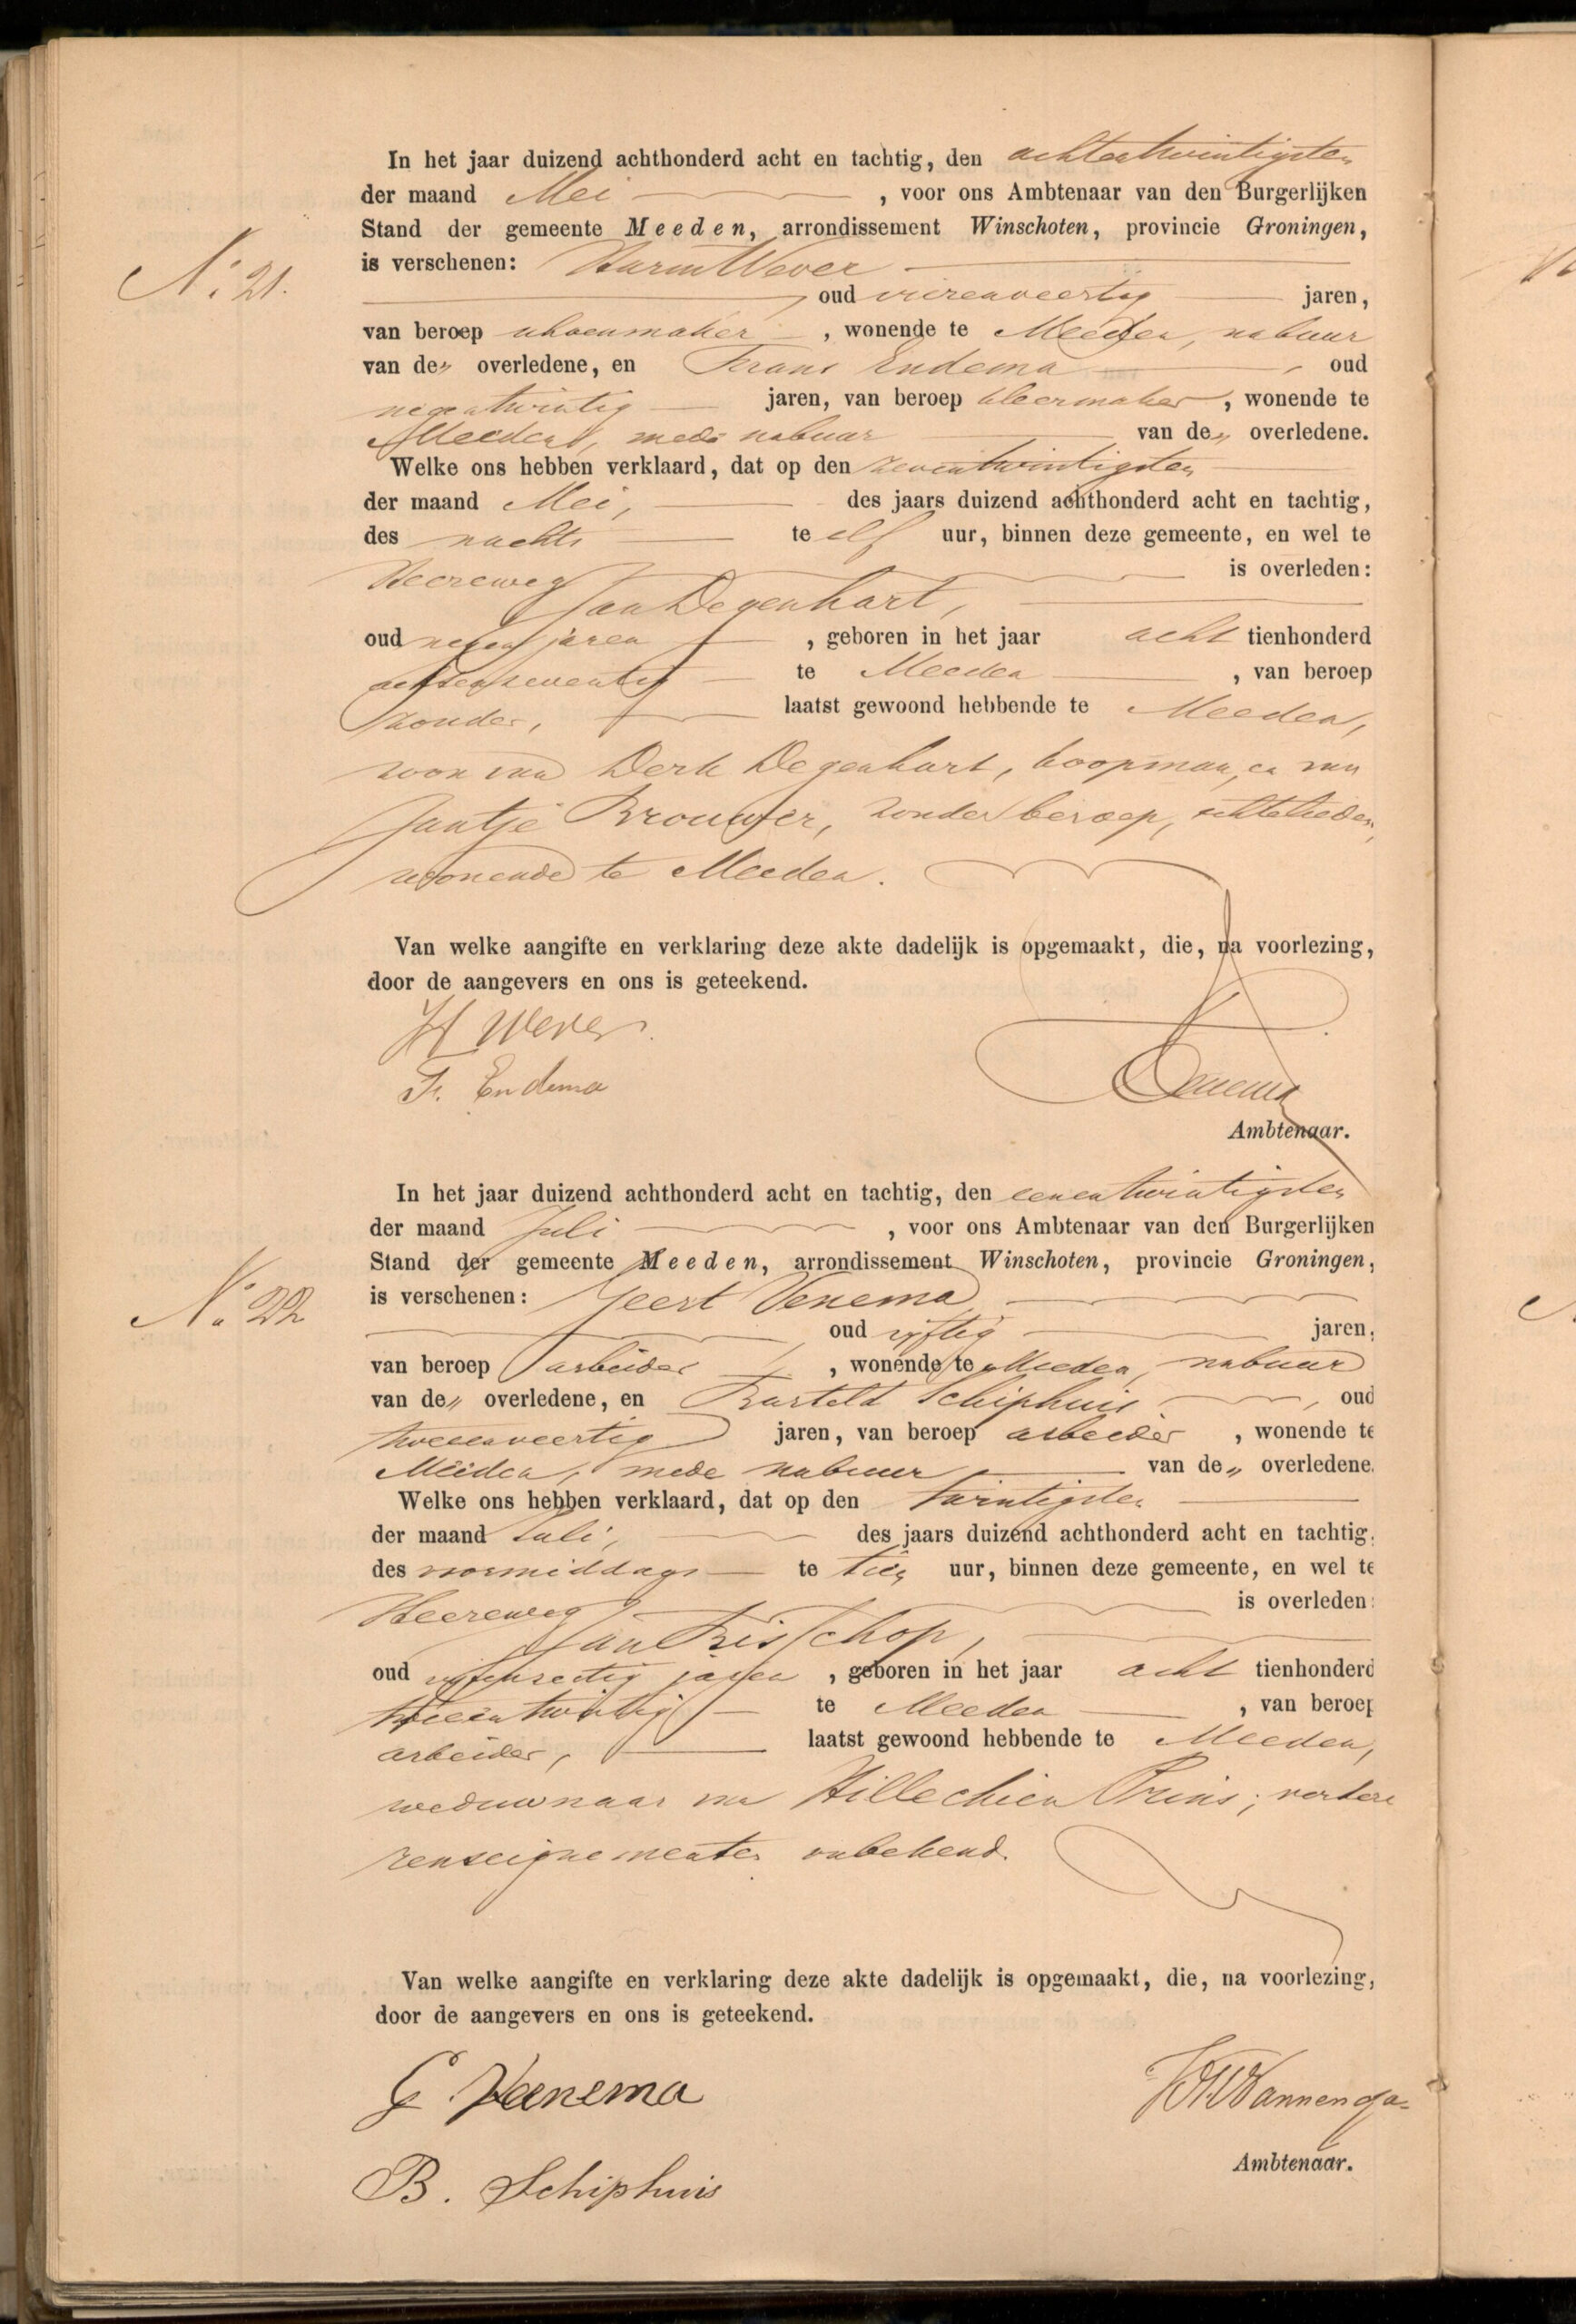 In het jaar duizend achthonderd acht en tachtig, den achtentwintigsten
der maand Mei , voor ons Ambtenaar van den Burgerlijken
Stand der gemeente Meeden, arrondissement Winschoten, provincie Groningen,
No. 21.
is verschenen: Harm Wever
oud vierenveertig jaren,
van beroep schoenmaker , wonende te Meeden, nabuur
van de„ overledene, en Frans Endema oud
negentwintig jaren, van beroep kleermaker , wonende te
Meeden, mede nabuur van de„ overledene.
Welke ons hebben verklaard, dat op den zeventwintigsten
der maand Mei, des jaars duizend achthonderd acht en tachtig,
des nachts te elf uur, binnen deze gemeente, en wel te
Heereweg is overleden:
Jan Degenhart,
oud negen jaren , geboren in het jaar acht tienhonderd
achtenzeventig te Meeden , van beroep
zonder, laatst gewoond hebbende te Meeden,
zoon van Derk Degenhart, koopman, en van
Jantje Brouwer, zonder beroep, echtelieden,
wonende te Meeden.
Van welke aangifte en verklaring deze akte dadelijk is opgemaakt, die, na voorlezing,
door de aangevers en ons is geteekend.
H Wever.
Fr. Endema
Ambtenaar.
In het jaar duizend achthonderd acht en tachtig, den eenentwintigsten
der maand Juli , voor ons Ambtenaar van den Burgerlijken
Stand der gemeente Meeden, arrondissement Winschoten, provincie Groningen,
No. 22
is verschenen: Geert Venema
oud vijftig jaren,
van beroep arbeider , wonende te Meeden, nabuur
van de„ overledene, en Bartelt Schiphuis , oud
tweeenveertig jaren, van beroep arbeider , wonende te
Meeden, mede nabuur van de„ overledene.
Welke ons hebben verklaard, dat op den twintigsten
der maand Juli, des jaars duizend achthonderd acht en tachtig,
des voormiddags te tien uur, binnen deze gemeente, en wel te
Heereweg is overleden:
Jan Bisschop,
oud vijfenzestig jaren , geboren in het jaar acht tienhonderd
tweeentwintig te Meeden , van beroep
arbeider, laatst gewoond hebbende te Meeden,
weduwnaar van Hillechien Prins; verdere
renseignementen onbekend.
Van welke aangifte en verklaring deze akte dadelijk is opgemaakt, die, na voorlezing,
door de aangevers en ons is geteekend.
G Venema
B. Schiphuis
Ambtenaar.